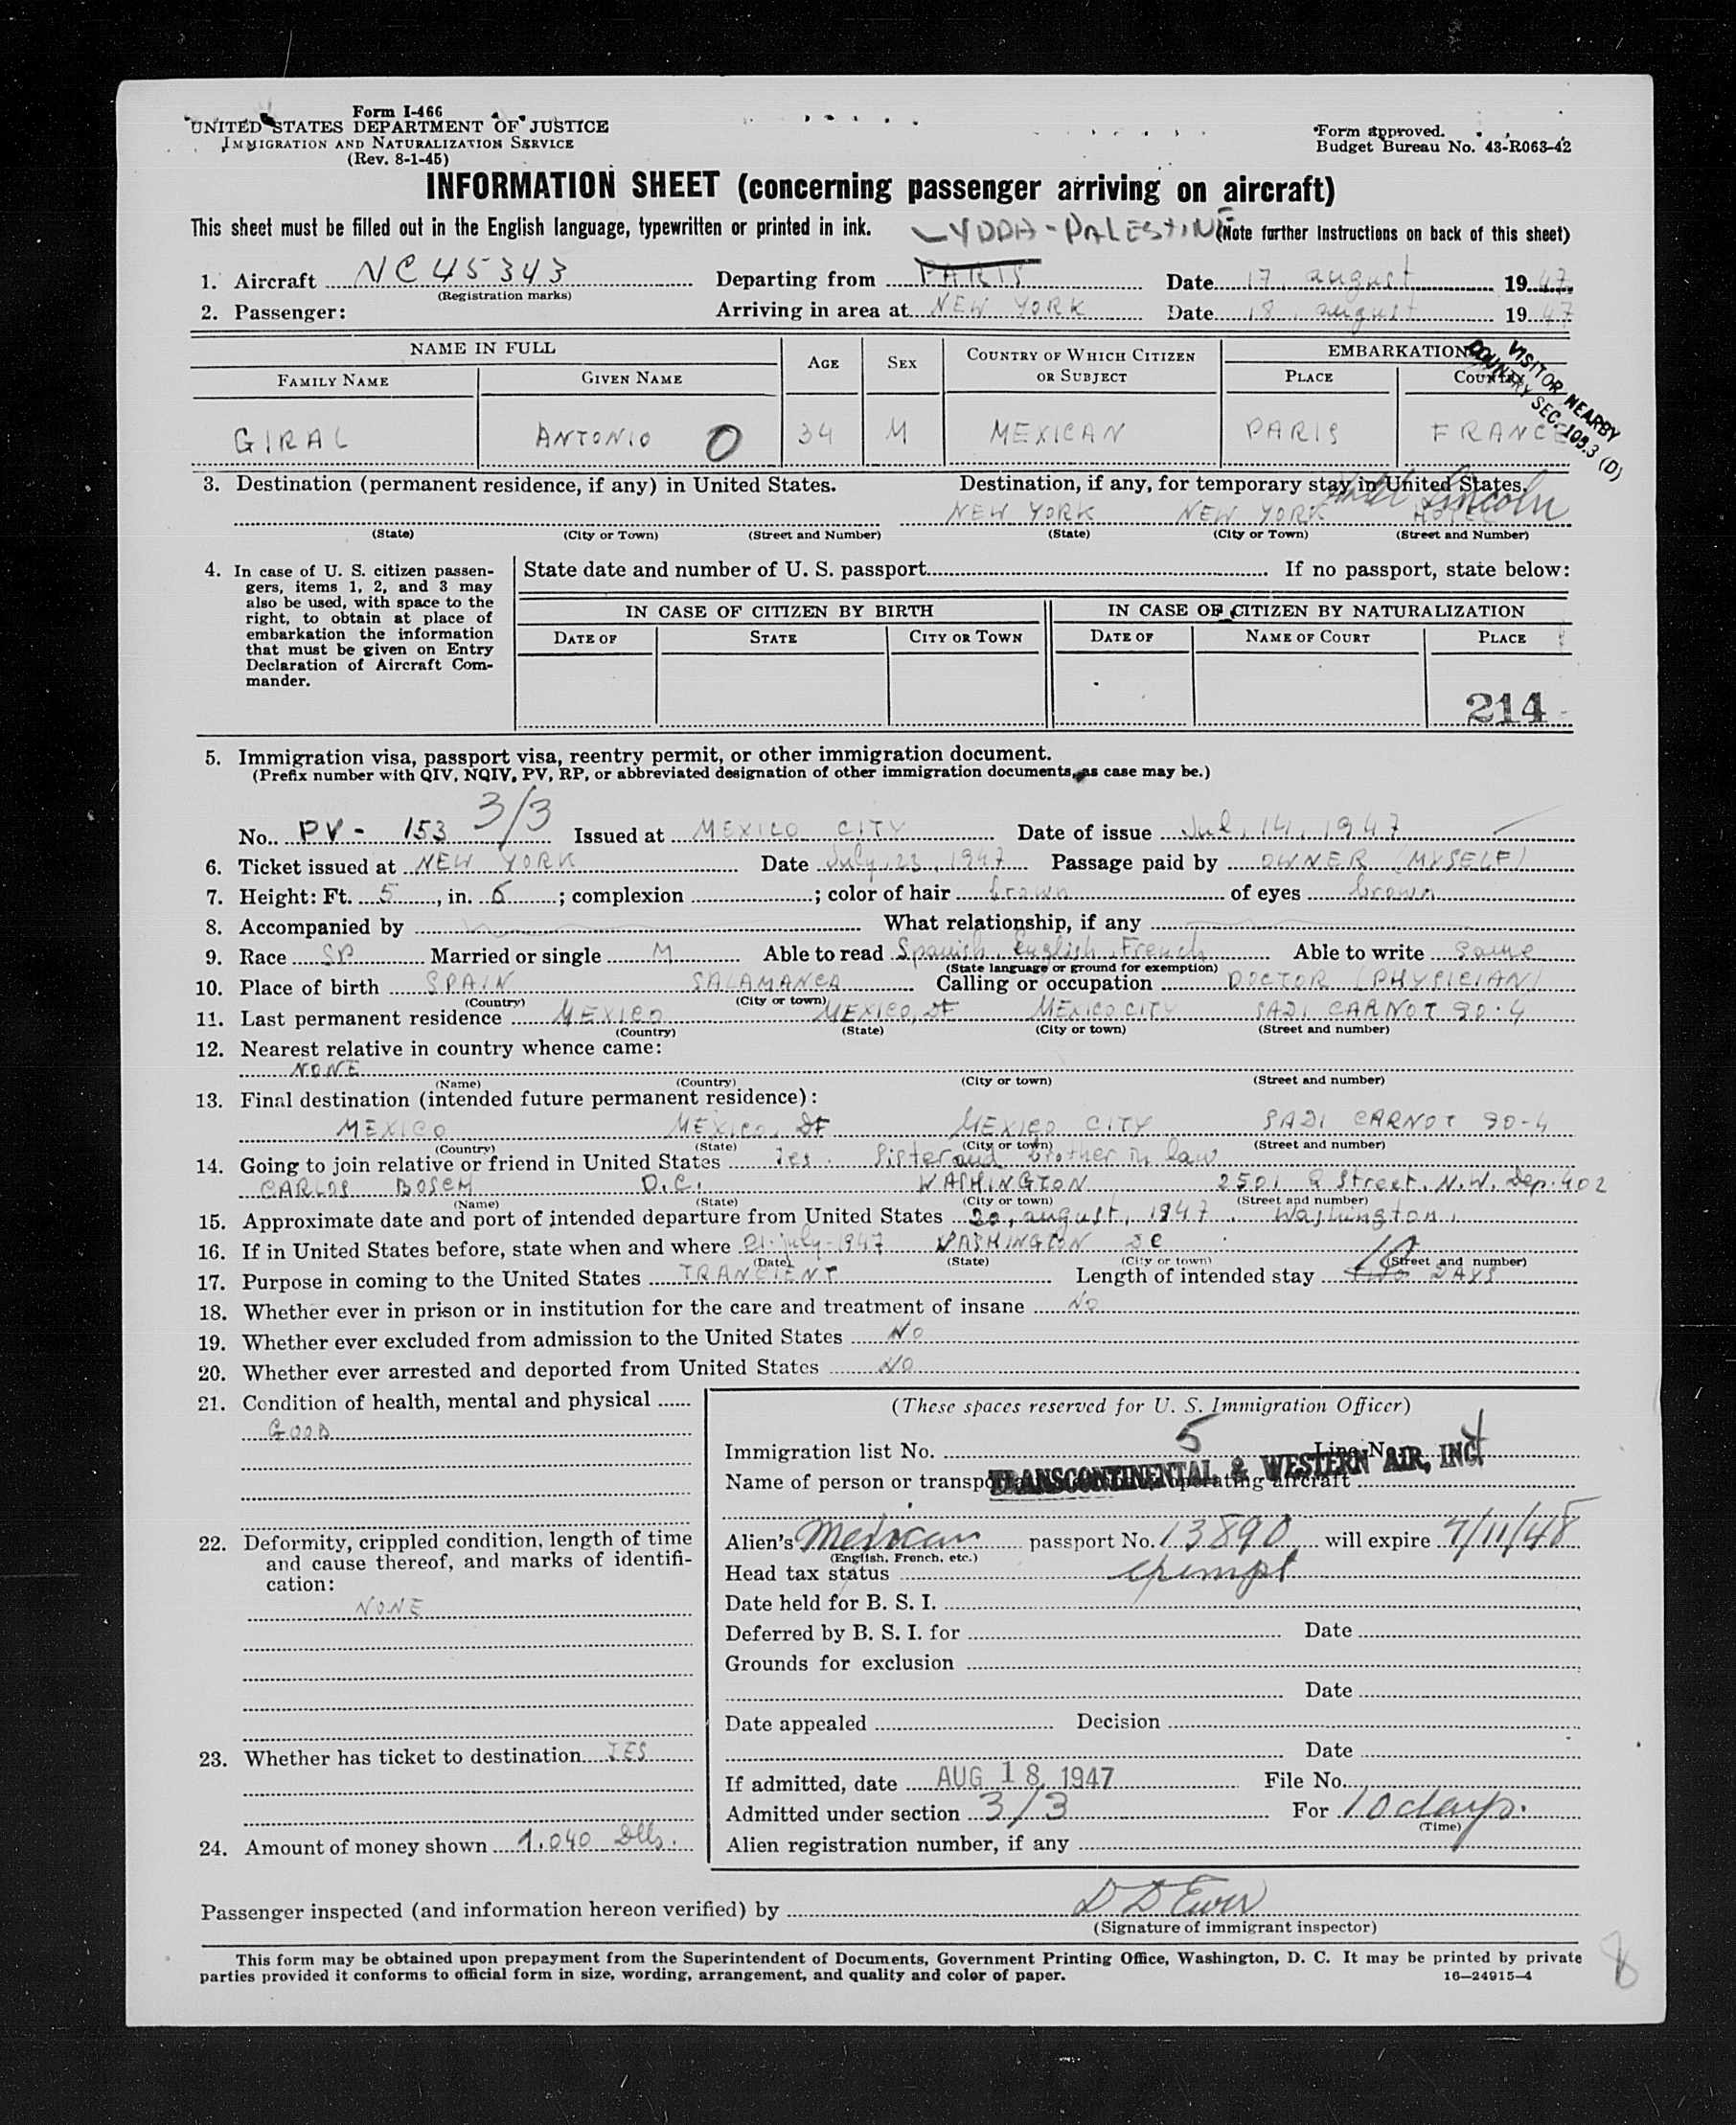 Form I-466
UNITED STATES DEPARTMENT OF JUSTICE
IMMIGRATION AND NATURALIZATION SERVICE
(Rev. 8-1-45)
Form approved.
Budget Bureau No. 43-R063-42
INFORMATION SHEET (concerning passenger arriving on aircraft)
This sheet must be filled out in the English language, typewritten or printed in ink. LYDDA - PALESTINE (Note further instructions on back of this sheet)
1. Aircraft NC45343 Departing from PARIS Date 17, august 1947
(Registration marks)
2. Passenger: Arriving in area at NEW YORK Date 18, august 1947
NAME IN FULL AGE SEX COUNTRY OF WHICH CITIZEN OR SUBJECT EMBARKATION
FAMILY NAME GIVEN NAME PLACE COUNTRY
VISITOR NEARBY
COUNTRY SEC. 109.3 (D)
GIRAL ANTONIO O 34 M MEXICAN PARIS FRANCE
3. Destination (permanent residence, if any) in United States. Destination, if any, for temporary stay in United States.
NEW YORK NEW YORK HOTEL Hotel Lincoln
(State) (City or Town) (Street and Number) (State) (City or Town) (Street and Number)
4. In case of U. S. citizen passen-
gers, items 1, 2, and 3 may
also be used, with space to the
right, to obtain at place of
embarkation the information
that must be given on Entry
Declaration of Aircraft Com-
mander.
State date and number of U. S. passport If no passport, state below:
IN CASE OF CITIZEN BY BIRTH IN CASE OF CITIZEN BY NATURALIZATION
DATE OF STATE CITY OR TOWN DATE OF NAME OF COURT PLACE
214
5. Immigration visa, passport visa, reentry permit, or other immigration document.
(Prefix number with QIV, NQIV, PV, RP, or abbreviated designation of other immigration documents, as case may be.)
No. PV - 153 3/3 Issued at MEXICO CITY Date of issue Jul, 14, 1947
6. Ticket issued at NEW YORK Date July, 23, 1947 Passage paid by OWNER (MYSELF)
7. Height: Ft. 5, in. 6; complexion ; color of hair brown of eyes brown
8. Accompanied by What relationship, if any
9. Race SP Married or single M Able to read Spanish, English, French Able to write same
(State language or ground for exemption)
10. Place of birth SPAIN SALAMANCA Calling or occupation DOCTOR (PHYSICIAN)
(Country) (City or town)
11. Last permanent residence MEXICO MEXICO, DF MEXICO CITY SADI CARNOT 90-4
(Country) (State) (City or town) (Street and number)
12. Nearest relative in country whence came:
NONE
(Name) (Country) (City or town) (Street and number)
13. Final destination (intended future permanent residence):
MEXICO MEXICO, DF MEXICO CITY SADI CARNOT 90-4
(Country) (State) (City or town) (Street and number)
14. Going to join relative or friend in United States Yes. Sister and brother in law
CARLOS BOSCH D.C. WASHINGTON 2501 Q Street, N.W. Dep. 402
(Name) (State) (City or town) (Street and number)
15. Approximate date and port of intended departure from United States 20, august, 1947. Washington.
16. If in United States before, state when and where 21-July-1947 WASHINGTON DC
(Date) (State) (City or town) (Street and number)
17. Purpose in coming to the United States TRANCIENT Length of intended stay 10 DAYS
18. Whether ever in prison or in institution for the care and treatment of insane NO
19. Whether ever excluded from admission to the United States NO
20. Whether ever arrested and deported from United States NO
21. Condition of health, mental and physical
GOOD
22. Deformity, crippled condition, length of time
and cause thereof, and marks of identifi-
cation:
NONE
23. Whether has ticket to destination YES
24. Amount of money shown 1.040 Dlls.
(These spaces reserved for U. S. Immigration Officer)
Immigration list No. 5 Line No. 4
Name of person or transportation operating aircraft
TRANSCONTINENTAL & WESTERN AIR, INC.
Alien's Mexican passport No. 13890 will expire 7/11/48
(English, French, etc.)
Head tax status exempt
Date held for B. S. I.
Deferred by B. S. I. for Date
Grounds for exclusion
Date
Date appealed Decision
Date
If admitted, date AUG 18 1947 File No.
Admitted under section 3/3 For 10 days.
(Time)
Alien registration number, if any
Passenger inspected (and information hereon verified) by D D Ewer
(Signature of immigrant inspector)
This form may be obtained upon prepayment from the Superintendent of Documents, Government Printing Office, Washington, D. C. It may be printed by private
parties provided it conforms to official form in size, wording, arrangement, and quality and color of paper. 16—24915-4
8